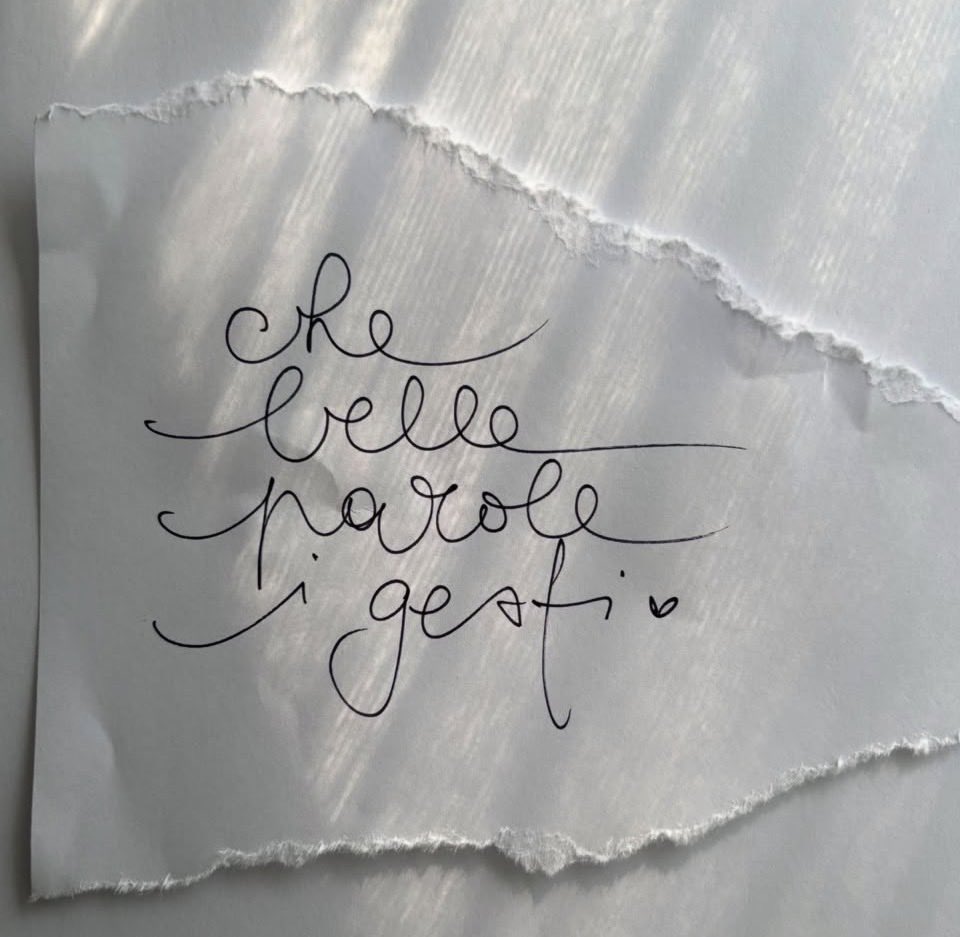 che
belle
parole
i gesti